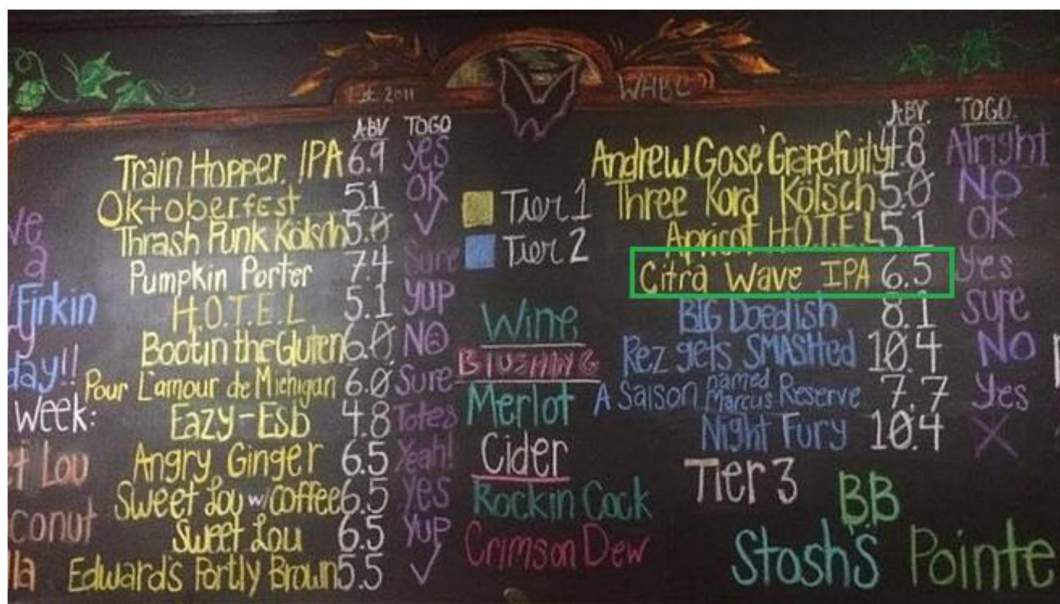 Est. 2011
WABC
ABV TOGO
Train Hopper IPA 6.9 Yes
Oktoberfest 5.1 OK
Thrash Punk Kölsch 5.0 ✓
Pumpkin Porter 7.4 Sure
H.O.T.E.L 5.1 YUP
Bootin the Gluten 6.0 NO
Pour L'amour de Michigan 6.0 Sure
Eazy-Esb 4.8 Totes
Angry Ginger 6.5 Yeah!
Sweet Lou w/coffee 6.5 Yes
Sweet Lou 6.5 Yup
Edward's Portly Brown 5.5 ✓
Firkin
day!!
Week:
Lou
Tier 1
Tier 2
Wine
Merlot
Cider
Rockin Cock
Crimson Dew
ABV. TOGO
Andrew Gose' Grapefruity 4.8 Alright
Three Kord Kölsch 5.0 NO
Apricot H.O.T.E.L 5.1 OK
Citra Wave IPA 6.5 Yes
BIG Doedish 8.1 Sure
Rez gets SMASHted 10.4 NO
A Saison named Marcus Reserve 7.7 Yes
Night Fury 10.4 X
Tier 3
BB
Stosh's Pointe